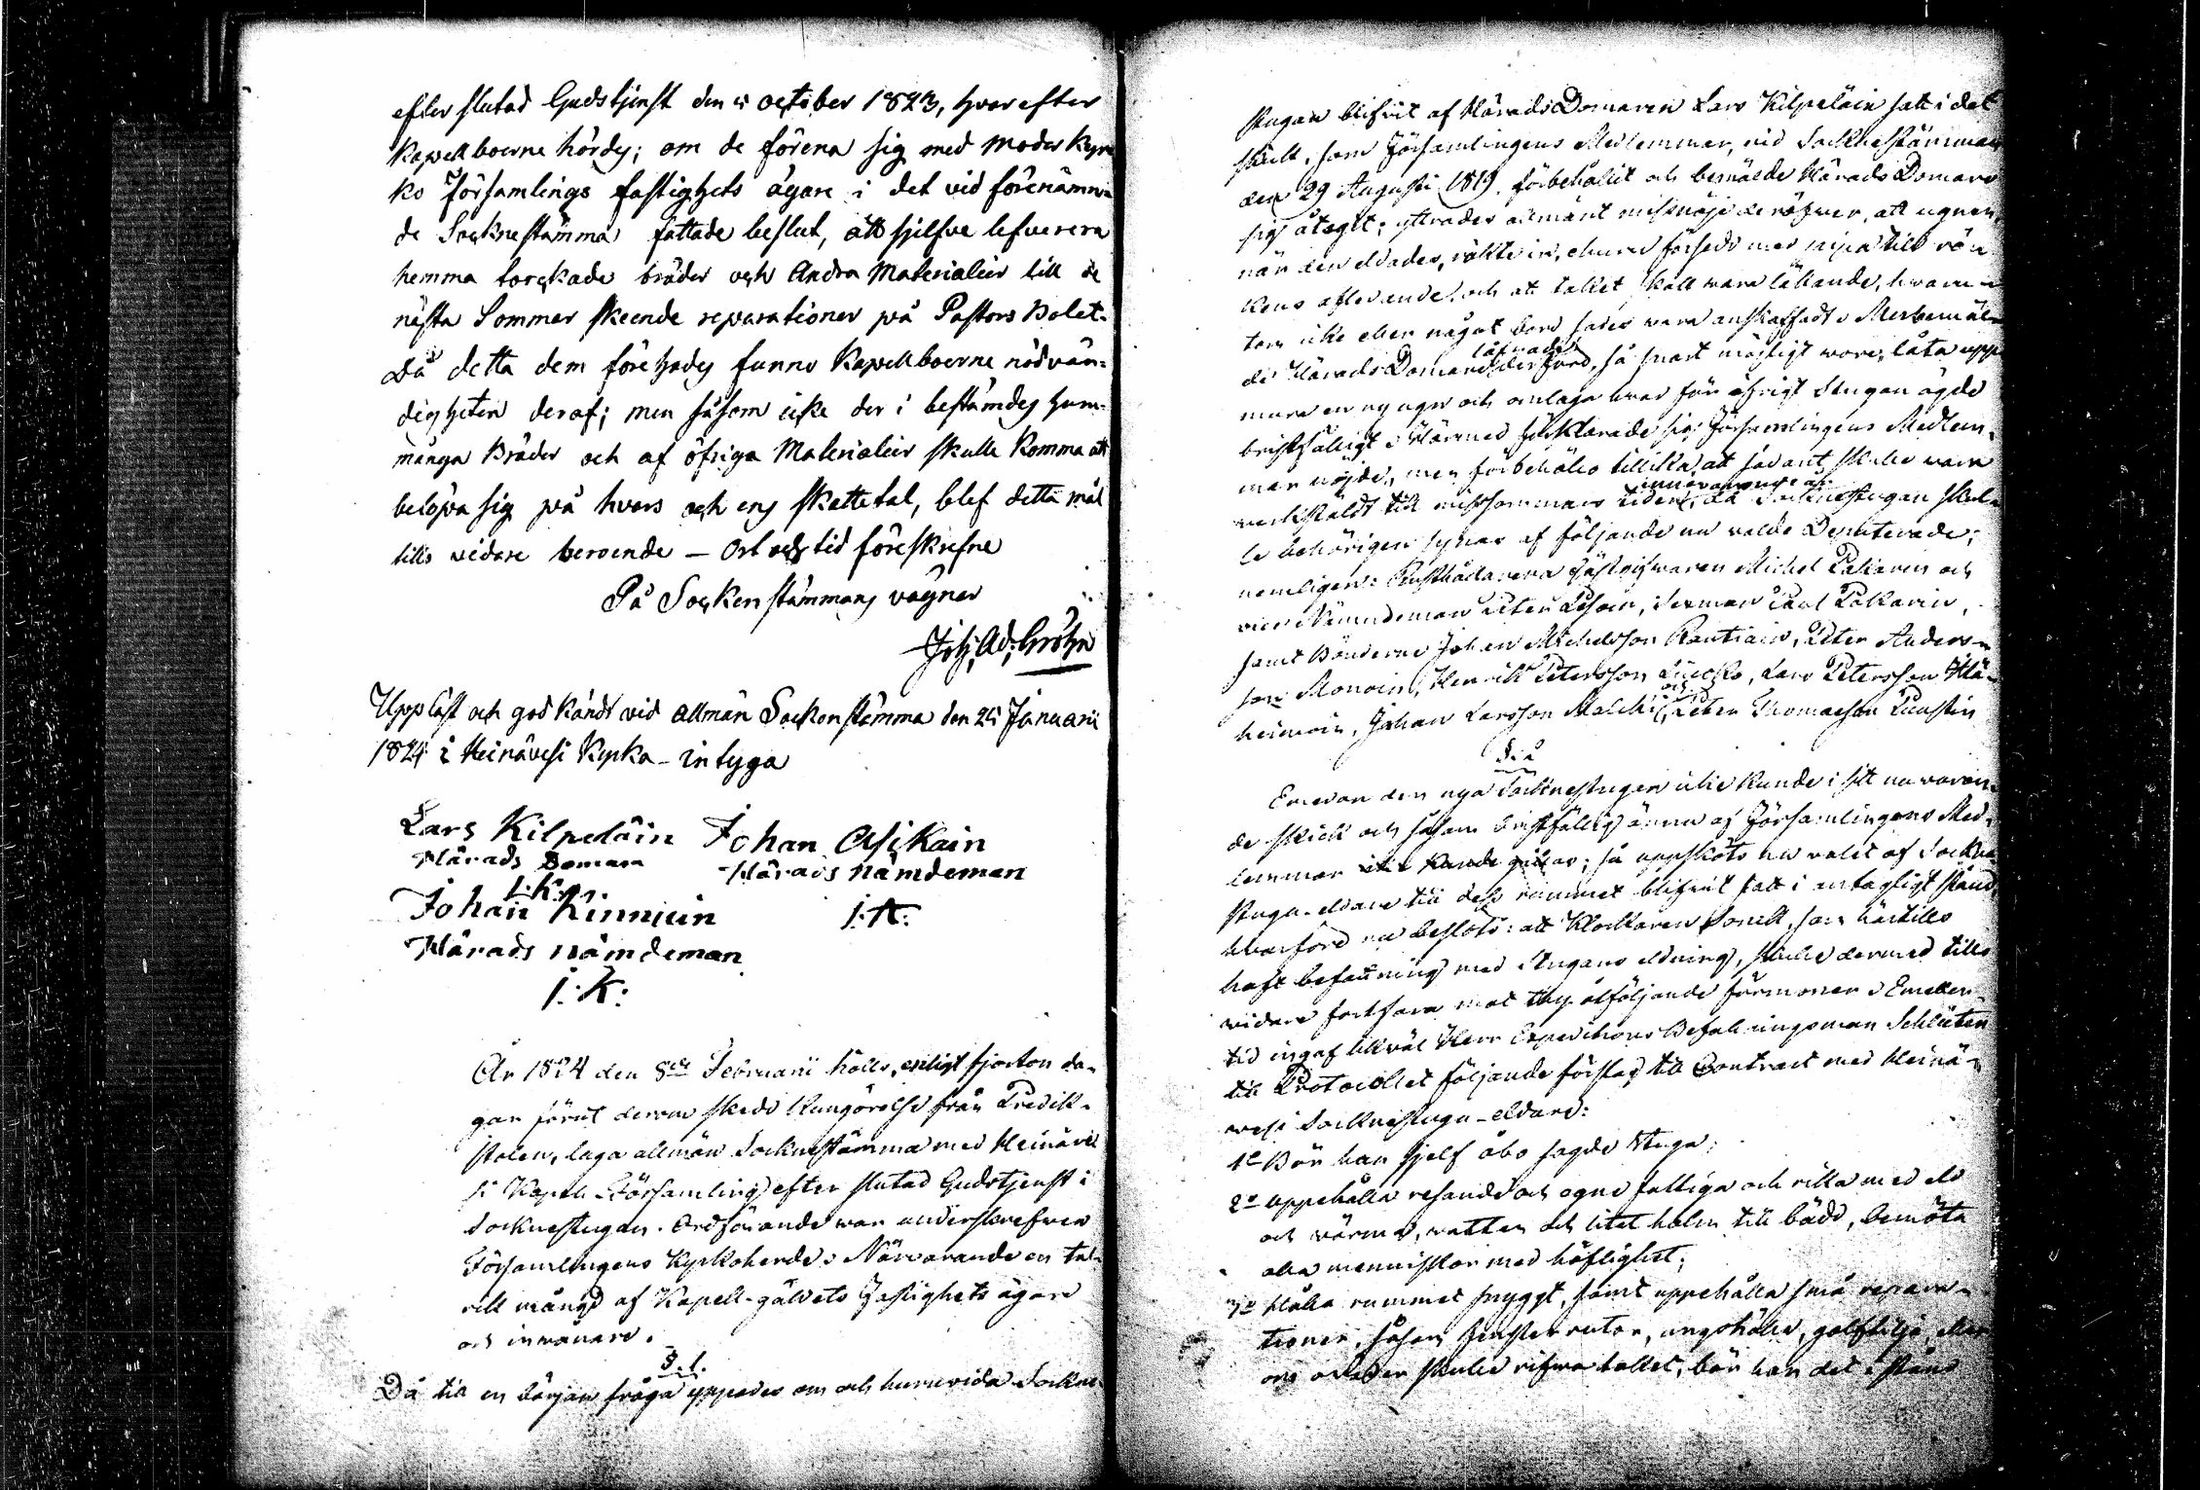 efter slutad Gudstjenst den 5 october 1823, hvarefter
Kapellboerne hördes; om de förena sig med Moder Kyr-
ko Församlings fastighets ägare i det vid förenämn-
de Sockne stämma fattade beslut, att sjelfve lefverera
hemma torckade bräder och Andra Materialier till de
nästa Sommar skeende reparationer på Pastors Bolet.
Då detta dem förehades funno Kapellboerne nödvän-
digheten deraf; men såsom icke der i bestämdes huru
många Bräder och af öfriga Materialier skulle Komma att
belöpa sig på hvars och ens skattetal, blef detta mål
tills vidare beroende – Ort och tid föreskrefne
På Sockenstämmans vägnar
Joh. Ad. Gröhn
Uppläst och god kändt vid allmän Sockenstämma den 25 Januarii
1824 i Heinävesi Kyrka – intyga
Lars Kilpeläin Johan Asikain
Härads Domare Härads Nämdeman
I. K.
Johan Kinnuin I. A.
Härads nämdeman
I. K.
År 1824 den 8de Februarii hölls, enligt fjorton da-
gar förut derom skedd Kungörelse från Predik-
stolen, laga allmän Socknestämma med Heinäve-
si Kapell-Församling efter slutad Gudstjenst i
Socknestugan. Ordförande var underskrefven
Församlingens Kyrkoherde. Närvarande en tal-
rik mängd af Kapell-gäldets Fastighets ägare
och invånare.
§. 1.
Då till en början fråga yppades om och huruvida Sockne-
stugan blifvit af Härads Domaren Lars Kilpeläin satt i det
skick, som Församlingens Medlemmar, vid Socknestämman
den 29 Augusti 1819. förbehållit och bemälde Härads Domare
sig åtagit; yttrades allmänt missnöje deröfver, att ugnen,
när den eldades, rökte in, ehuru försedd med pipa till rö-
kens afledande, och att taket skall vara läkande, hvaru-
tom icke eller något bord hade vara anskaffadt. Merbemäl-
de Härads Domare låfvade derföre, så snart möjligt vore, låta upp-
mura en ny ugn och anlaga hvar för öfrigt Stugan ägde
bristfälligt. Härmed förklarade sig Församlingens Medlem-
mar nöjde, men förbehöllo tillika, att sådant skulle vara
verkstäldt till midsommars tiden innevarande år, då Socknestugan skul-
le behörigen synas af följande nu valde Deputerade;
nemligen: Rusthållarena Gästgifvaren Michel Pakarin och
vice Nämndeman Peter Lesoin, Sexman Carl Pakarin,
samt Bönderne Johan Michelsson Rautiain, Peter Anders-
son Monoin, Henrik Petersson Lijecko, Lars Petersson Hä-
heinoin, Johan Larsson Malcki, och Peter Thomasson Puustin
§. 2
Emedan den nya Socknestugan icke kunde i sitt nu varan-
de skick och såsom bristfällig ännu af Församlingens Med-
lemmar icke kunde gillas; så uppsköts nu valet af Sockne
stugu-eldare till dess rummet blifvit satt i antagligt stånd,
hvarföre nu beslöts: att Klockaren Sonck, som härtills
haft befattning med Stugans eldning, skulle dermed tills
vidare fortfara mot thy åtföljande förmoner. Emeller-
tid ingaf likväl Herr Expeditions Befallningsman Schlüter
till Protocollet följande förslag till Contract med Heinä-
vesi Socknestugu-eldare:
1o Bör han sjelf åbo sagde Stuga;
2o uppehålla resande och ogne fattiga och rika med eld
och värma, vatten och litet halm till bädd, bemöta
alla menniskor med höflighet;
3o Hålla rummet snyggt, samt uppehålla små repara-
tioner, såsom fenster rutor, ungshäll, golftilja eller
om oväder skulle rifva taket, bör han det i stånd